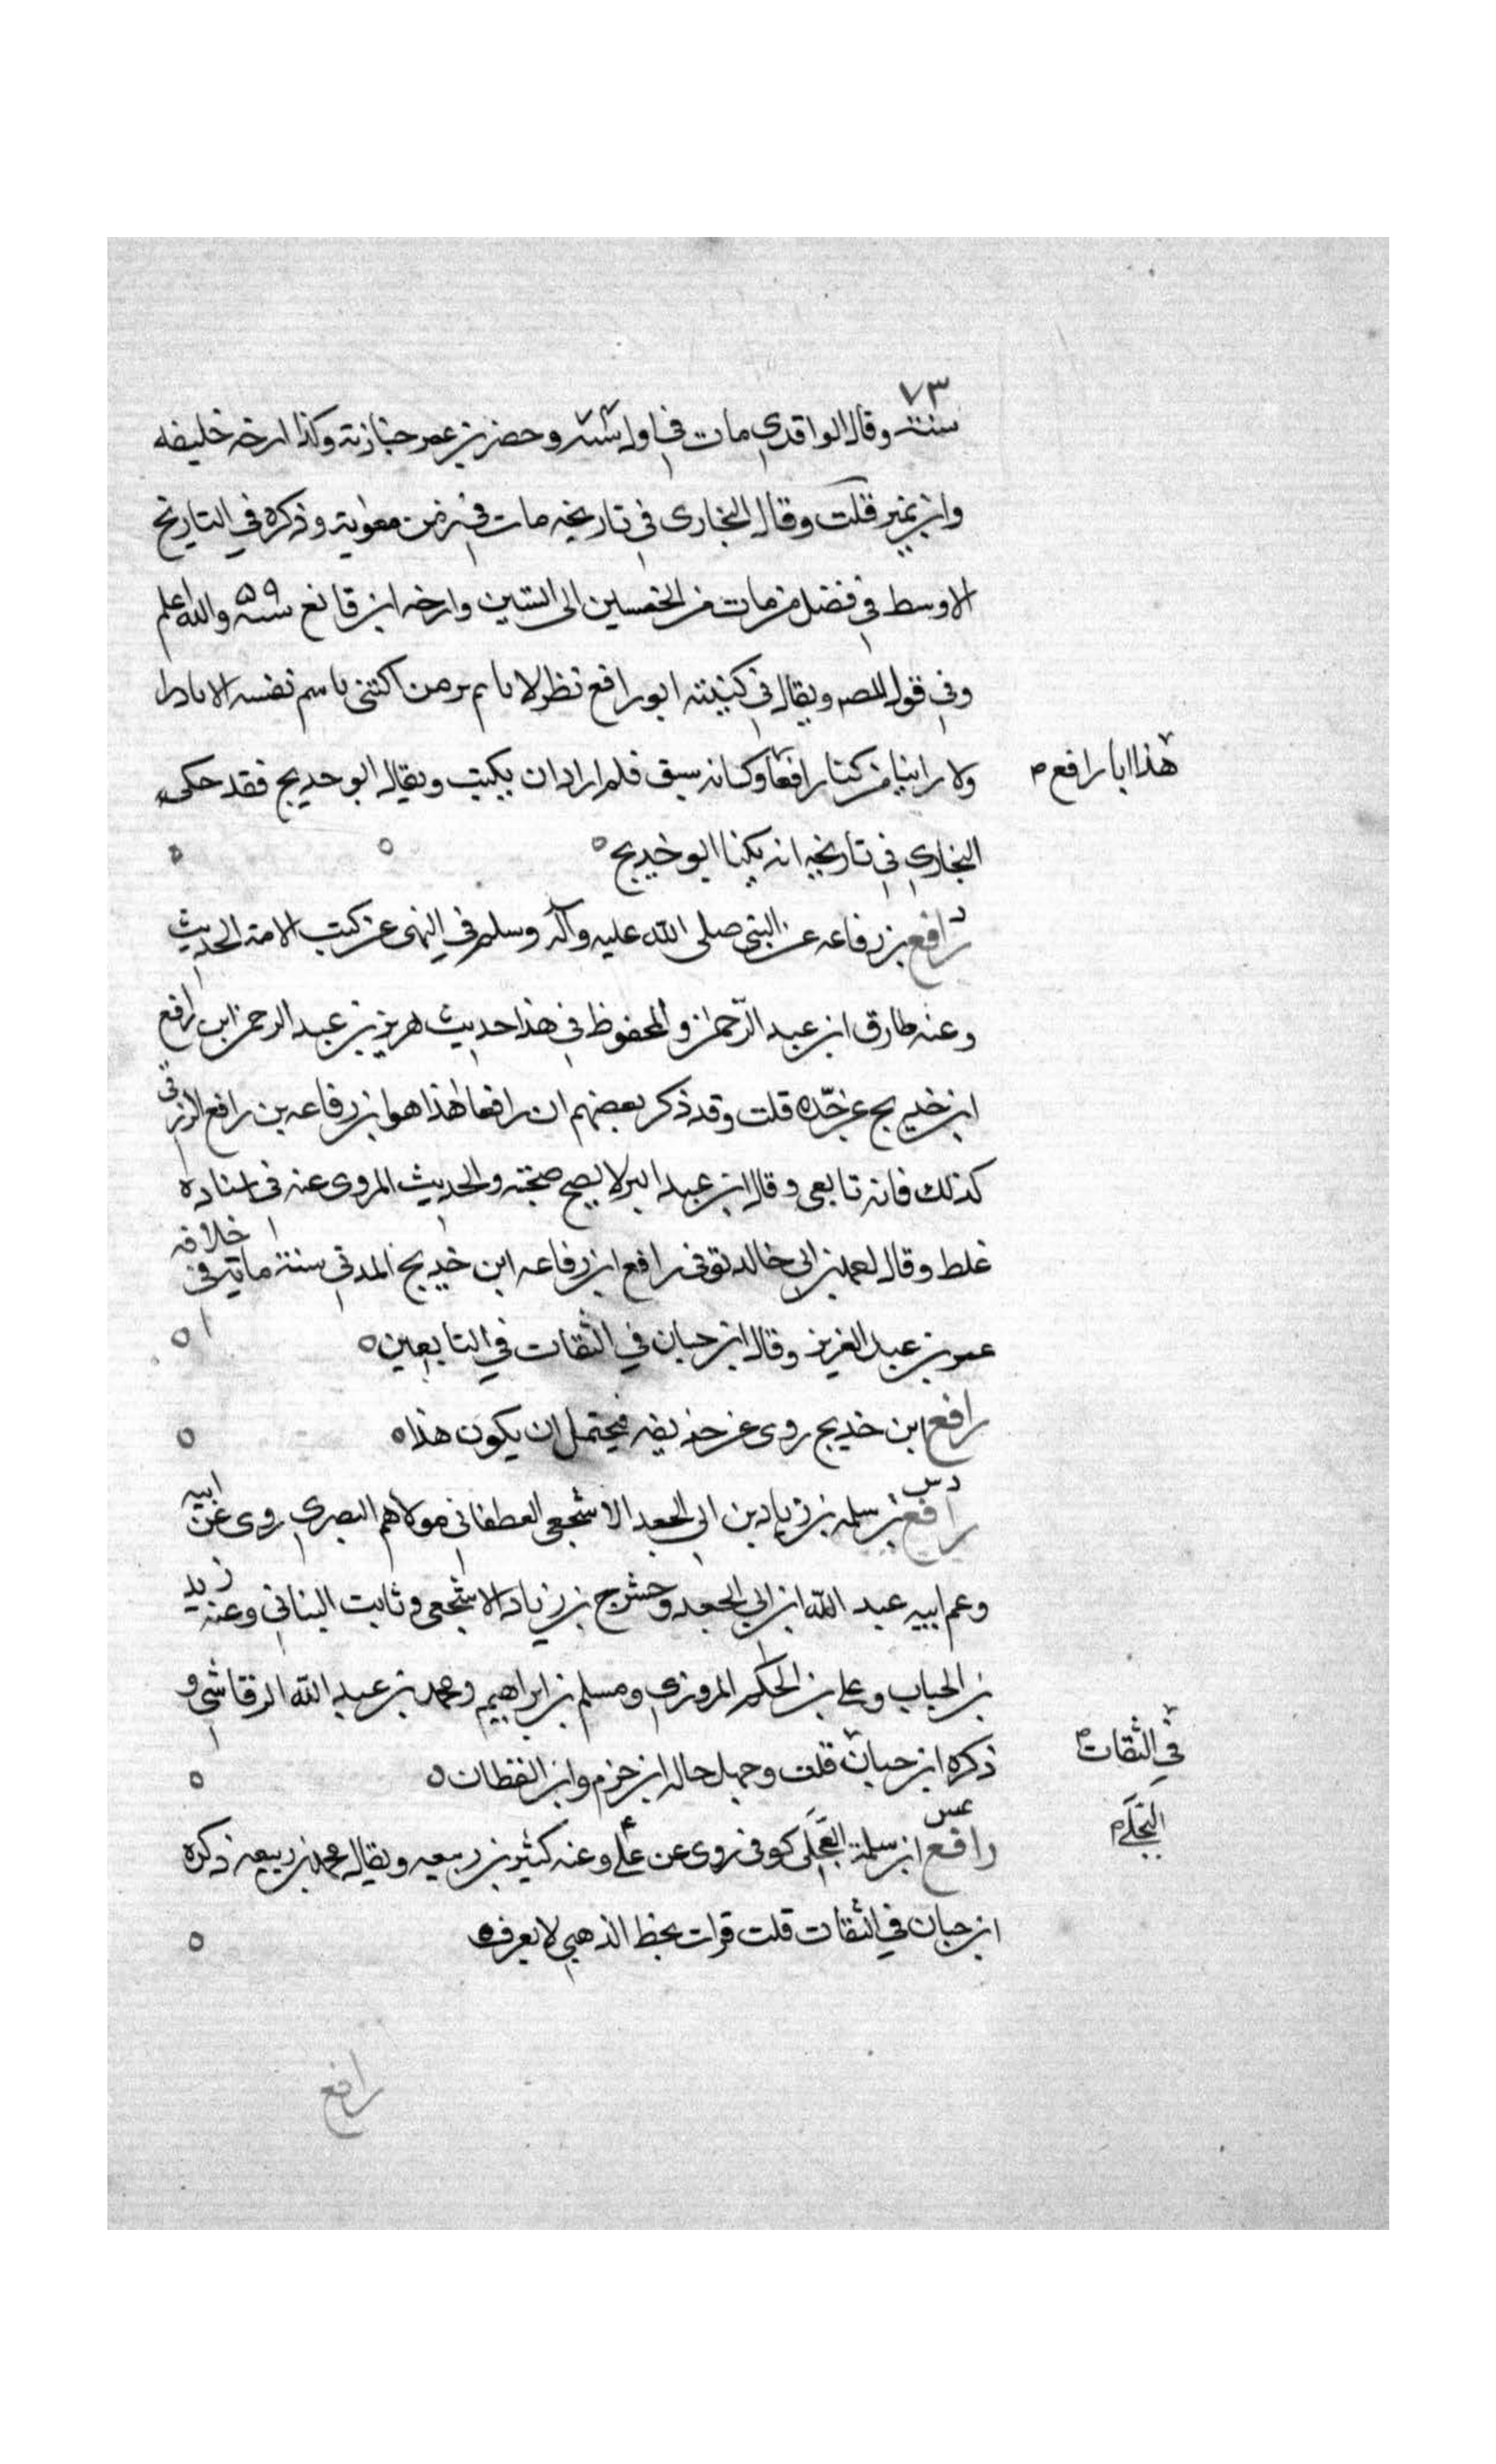 ٧٣
سنة وقال الواقدي مات في اول سنة ٧٤ وحضر بن عمر جنازته وكذا ارخه خليفه
وابن نمير قلت وقال البخارى في تاريخه مات في زمن معوية وذكره في التاريخ
الاوسط في فضل من مات من الخمسين الى الستين وارخه ابن قانع سنة ٥٩ والله اعلم
وفي قول المص ويقال في كنيته ابو رافع نظر لا نا لم نر من اكتنى باسم نفسه الا نادرا
ولا راينا من كنا رافعا وكانه سبق قلم اراد ان يكتب ويقال ابو خديج فقد حكى
هذا ابا رافع م
البخارى في تاريخه انه يكنا ابو خديج ه
د
رافع بن رفاعه عن النبي صلى الله عليه وآله وسلم في النهى عن كسب الامة الحديث
وعنه طارق ابن عبد الرّحمن والمحفوظ في هذا حديث هرير بن عبد الرحمن ابن رافع
ابن خديج عن جّده قلت وقد ذكر بعضهم ان رافعا هذا هو ابن رفاعه بن رافع الزرقى
كذلك فانه تابعى وقال ابن عبد البر لا يصح صحبته والحديث المروى عنه فى اسناده
غلط وقال احمد بن ابي خالد توفى رافع ابن رفاعه ابن خديج المدني سنة ماية في خلافه
عمر بن عبد العزيز وقال ابن حبان في الثقات في التابعين ه
رافع ابن خديج روى عن حذيفه فيحتمل ان يكون هذا ه
د س
رافع بن سلمه بن زياد بن ابي الجعد الاشجعى الغطفانى مولاهم البصري روى عن ابيه
وعم ابيه عبد الله ابن ابي الجعد وحشرج بن زياد الاشجعى وثابت البناني وعنه زيد
بن الحباب وعلى بن الحكم المروزي ومسلم بن ابراهيم ومحمد بن عبد الله الرقاشي و
ذكره ابن حبان قلت وجهل حاله ابن حزم وابن القطان ه
في الثقات
عس
رافع ابن سلمة العجلى كوفى روى عن على وعنه كثير بن ربيعه ويقال محمد بن ربيعه ذكره
البجلى م
ابن حبان في الثقات قلت قرات بخط الذهبي لا يعرف ه
رافع